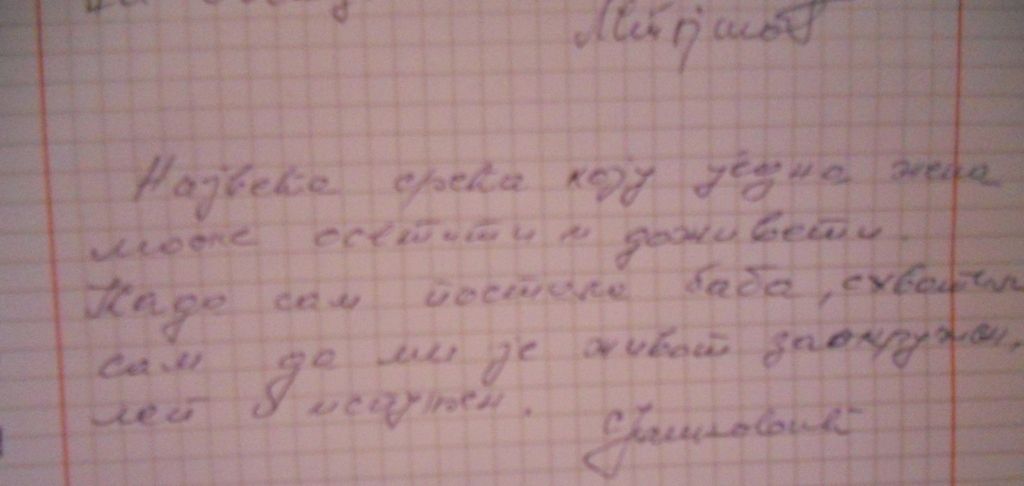 Највећа срећа коју једна жена
може осетити и доживети.
Када сам постала баба, схватила
сам да ми је живот заокружен,
леп и испуњен.